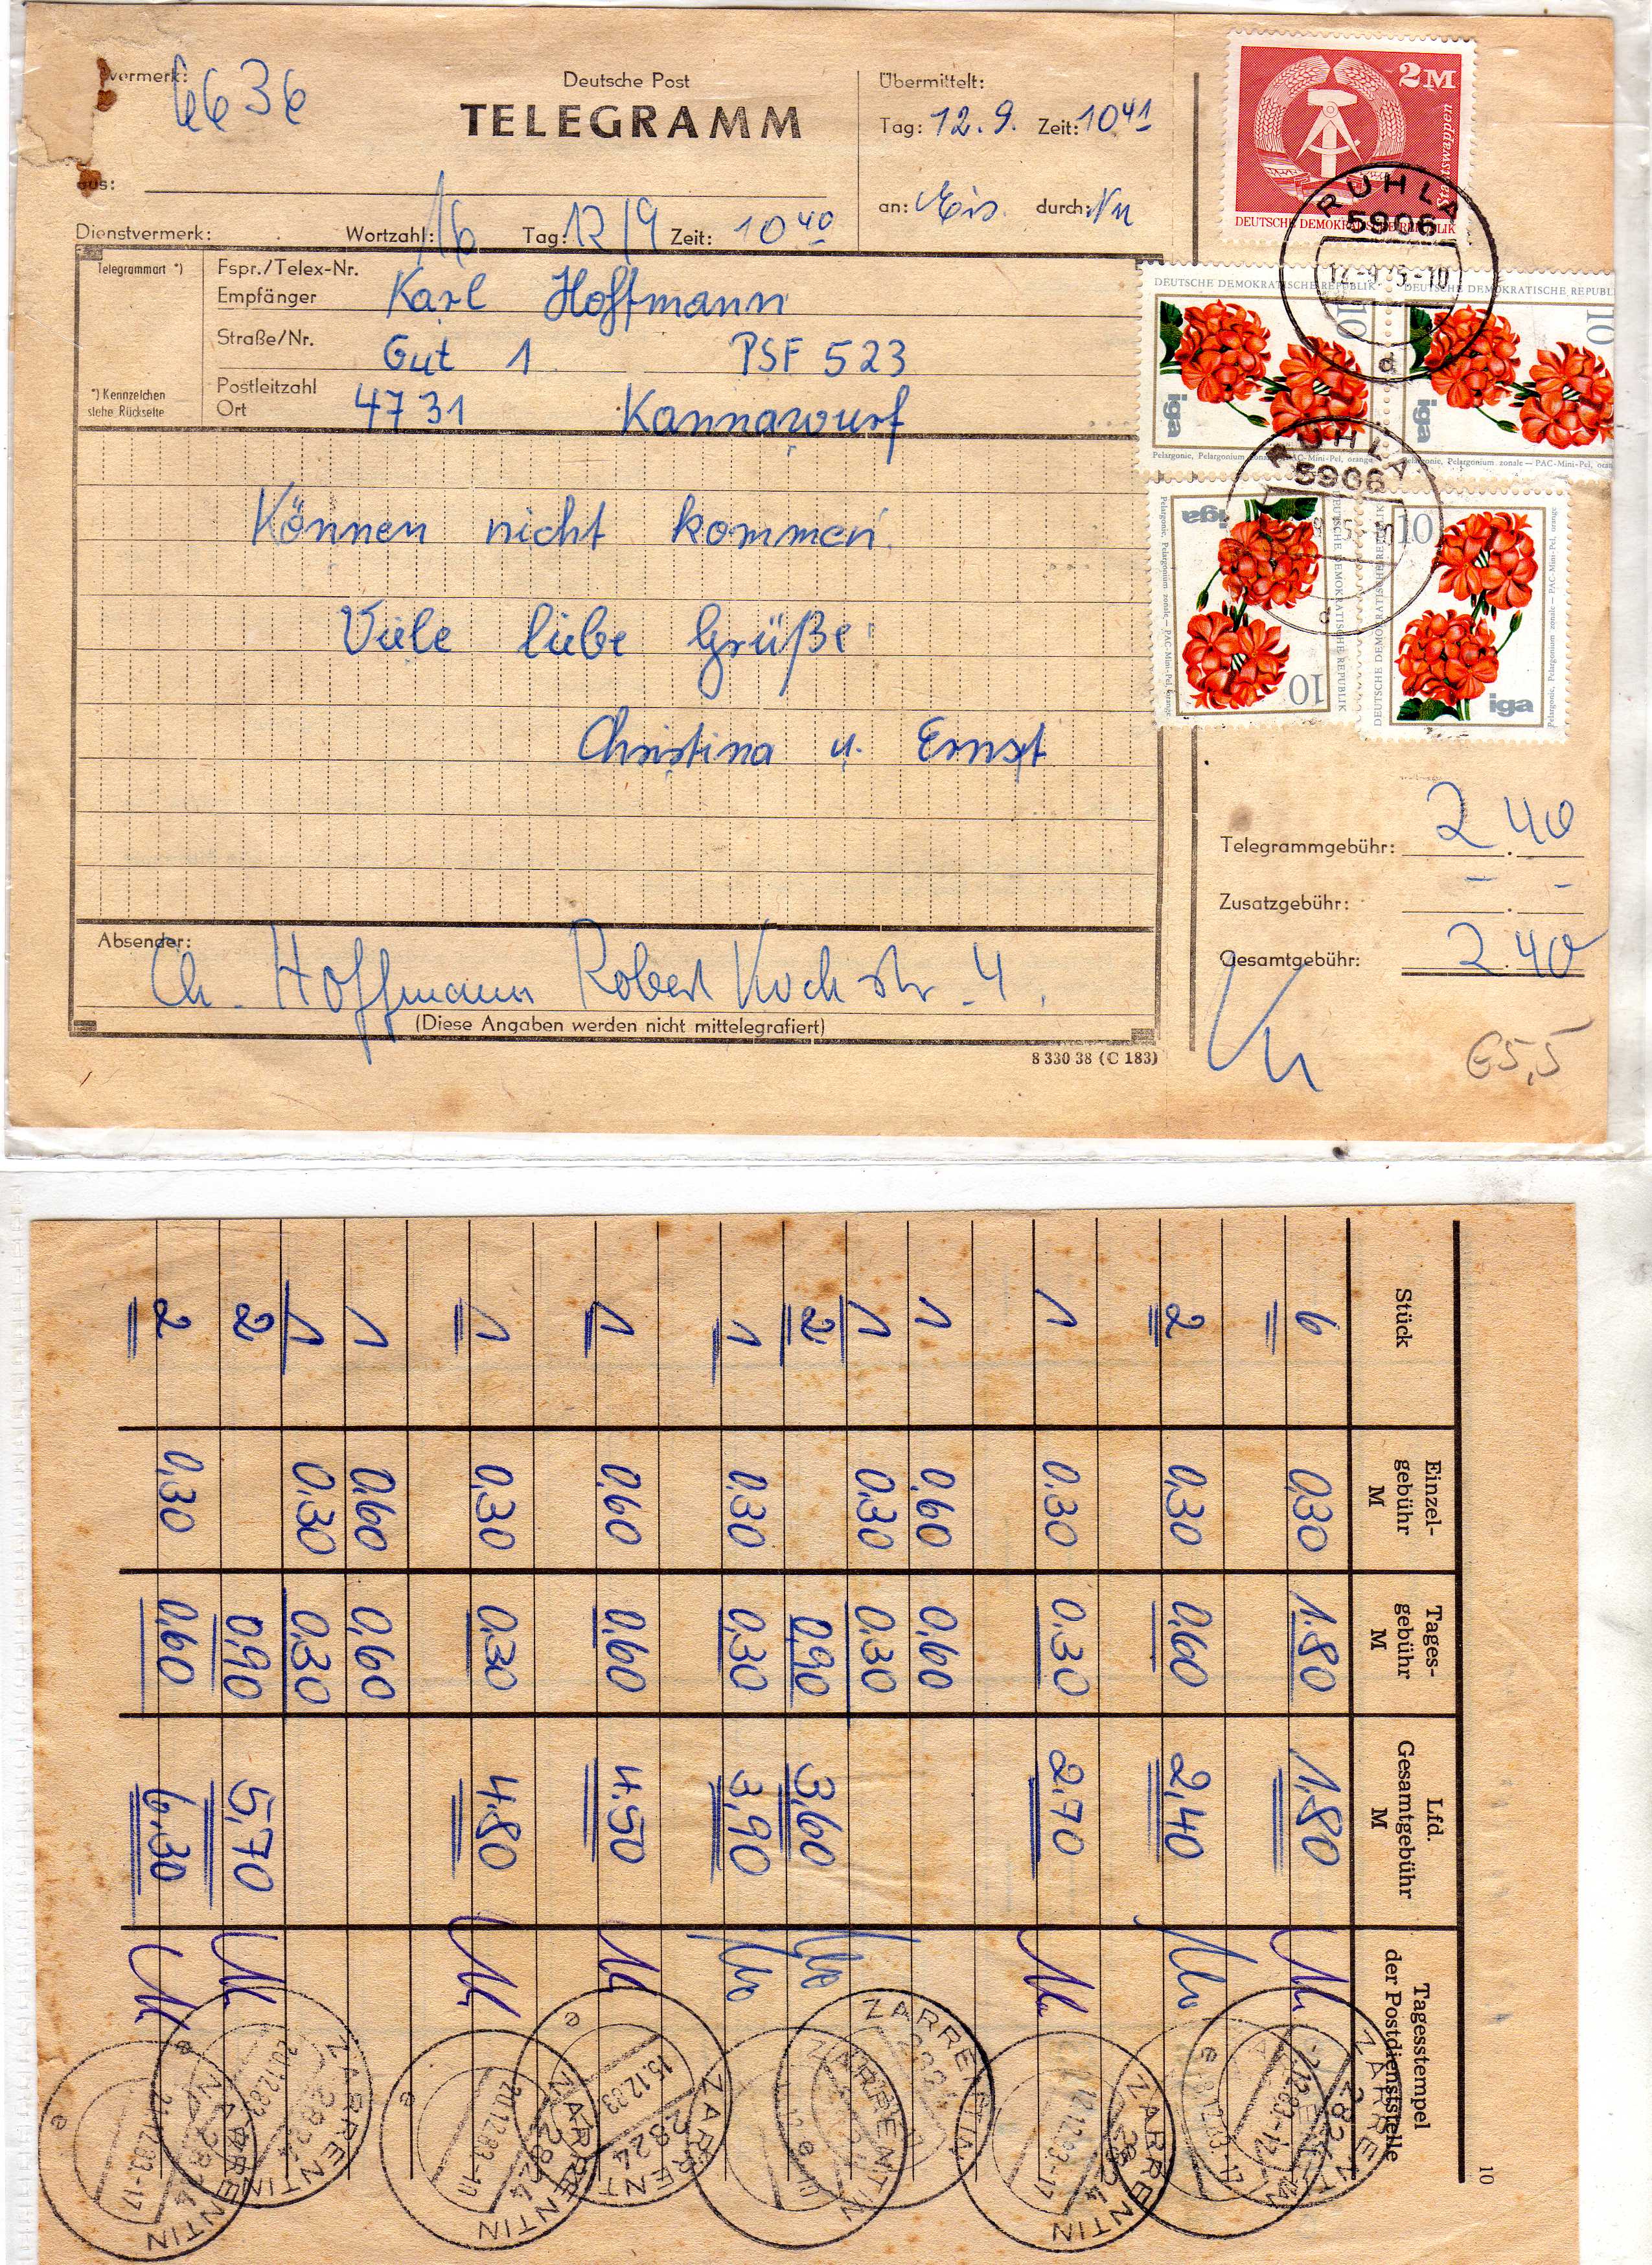 vermerk:
6636
Deutsche Post
TELEGRAMM
Übermittelt:
Tag: 12.9. Zeit: 10 41
aus:
an: Eis. durch:
Dienstvermerk: Wortzahl: 16 Tag: 12/9 Zeit: 10 40
Telegrammart *)
*) Kennzeichen
siehe Rückseite
Fspr./Telex-Nr.
Empfänger Karl Hoffmann
Straße/Nr. Gut 1 PSF 523
Postleitzahl
Ort 4731 Kannawurf
Können nicht kommen
Viele liebe Grüße
Christina u. Ernst
Absender:
Ch. Hoffmann Robert Koch str. 4.
(Diese Angaben werden nicht mittelegrafiert)
8 330 38 (C 183)
2 M
Staatswappen
DEUTSCHE DEMOKRATISCHE REPUBLIK
RUHLA
5906
12.-9.75.-10
d
DEUTSCHE DEMOKRATISCHE REPUBLIK
10
iga
Pelargonie, Pelargonium zonale — PAC-Mini-Pel, orange
DEUTSCHE DEMOKRATISCHE REPUBLIK
10
iga
Pelargonie, Pelargonium zonale — PAC-Mini-Pel, orange
RUHLA
5906
d
iga
10
DEUTSCHE DEMOKRATISCHE REPUBLIK
Pelargonie, Pelargonium zonale — PAC-Mini-Pel, orange
10
iga
DEUTSCHE DEMOKRATISCHE REPUBLIK
Pelargonie, Pelargonium zonale — PAC-Mini-Pel, orange
Telegrammgebühr: 2.40
Zusatzgebühr: - . -
Gesamtgebühr: 2.40
€5,5
Stück Einzel-gebühr M Tages-gebühr M Lfd. Gesamtgebühr M Tagesstempel der Postdienststelle
10
6 0,30 1.80 1.80
2 0,30 0,60 2,40
1 0,30 0,30 2,70
1 0,60 0,60
1 0,30 0,30
2 0,90 3,60
1 0,30 0,30 3,90
1 0,60 0,60 4.50
1 0,30 0,30 4.80
1 0,60 0,60
1 0,30 0,30
2 0,90 5,70
2 0,30 0,60 6,30
ZARRENTIN
2824
-8.12.83.-17
e
ZARRENTIN
2824
ZARRENTIN
ZARRENTIN
2824
15.12.83
e
ZARRENTIN
2824
20.12.83-11
e
ZARRENTIN
2824
20.12.83
e
ZARRENTIN
2824
21.12.83-17
e